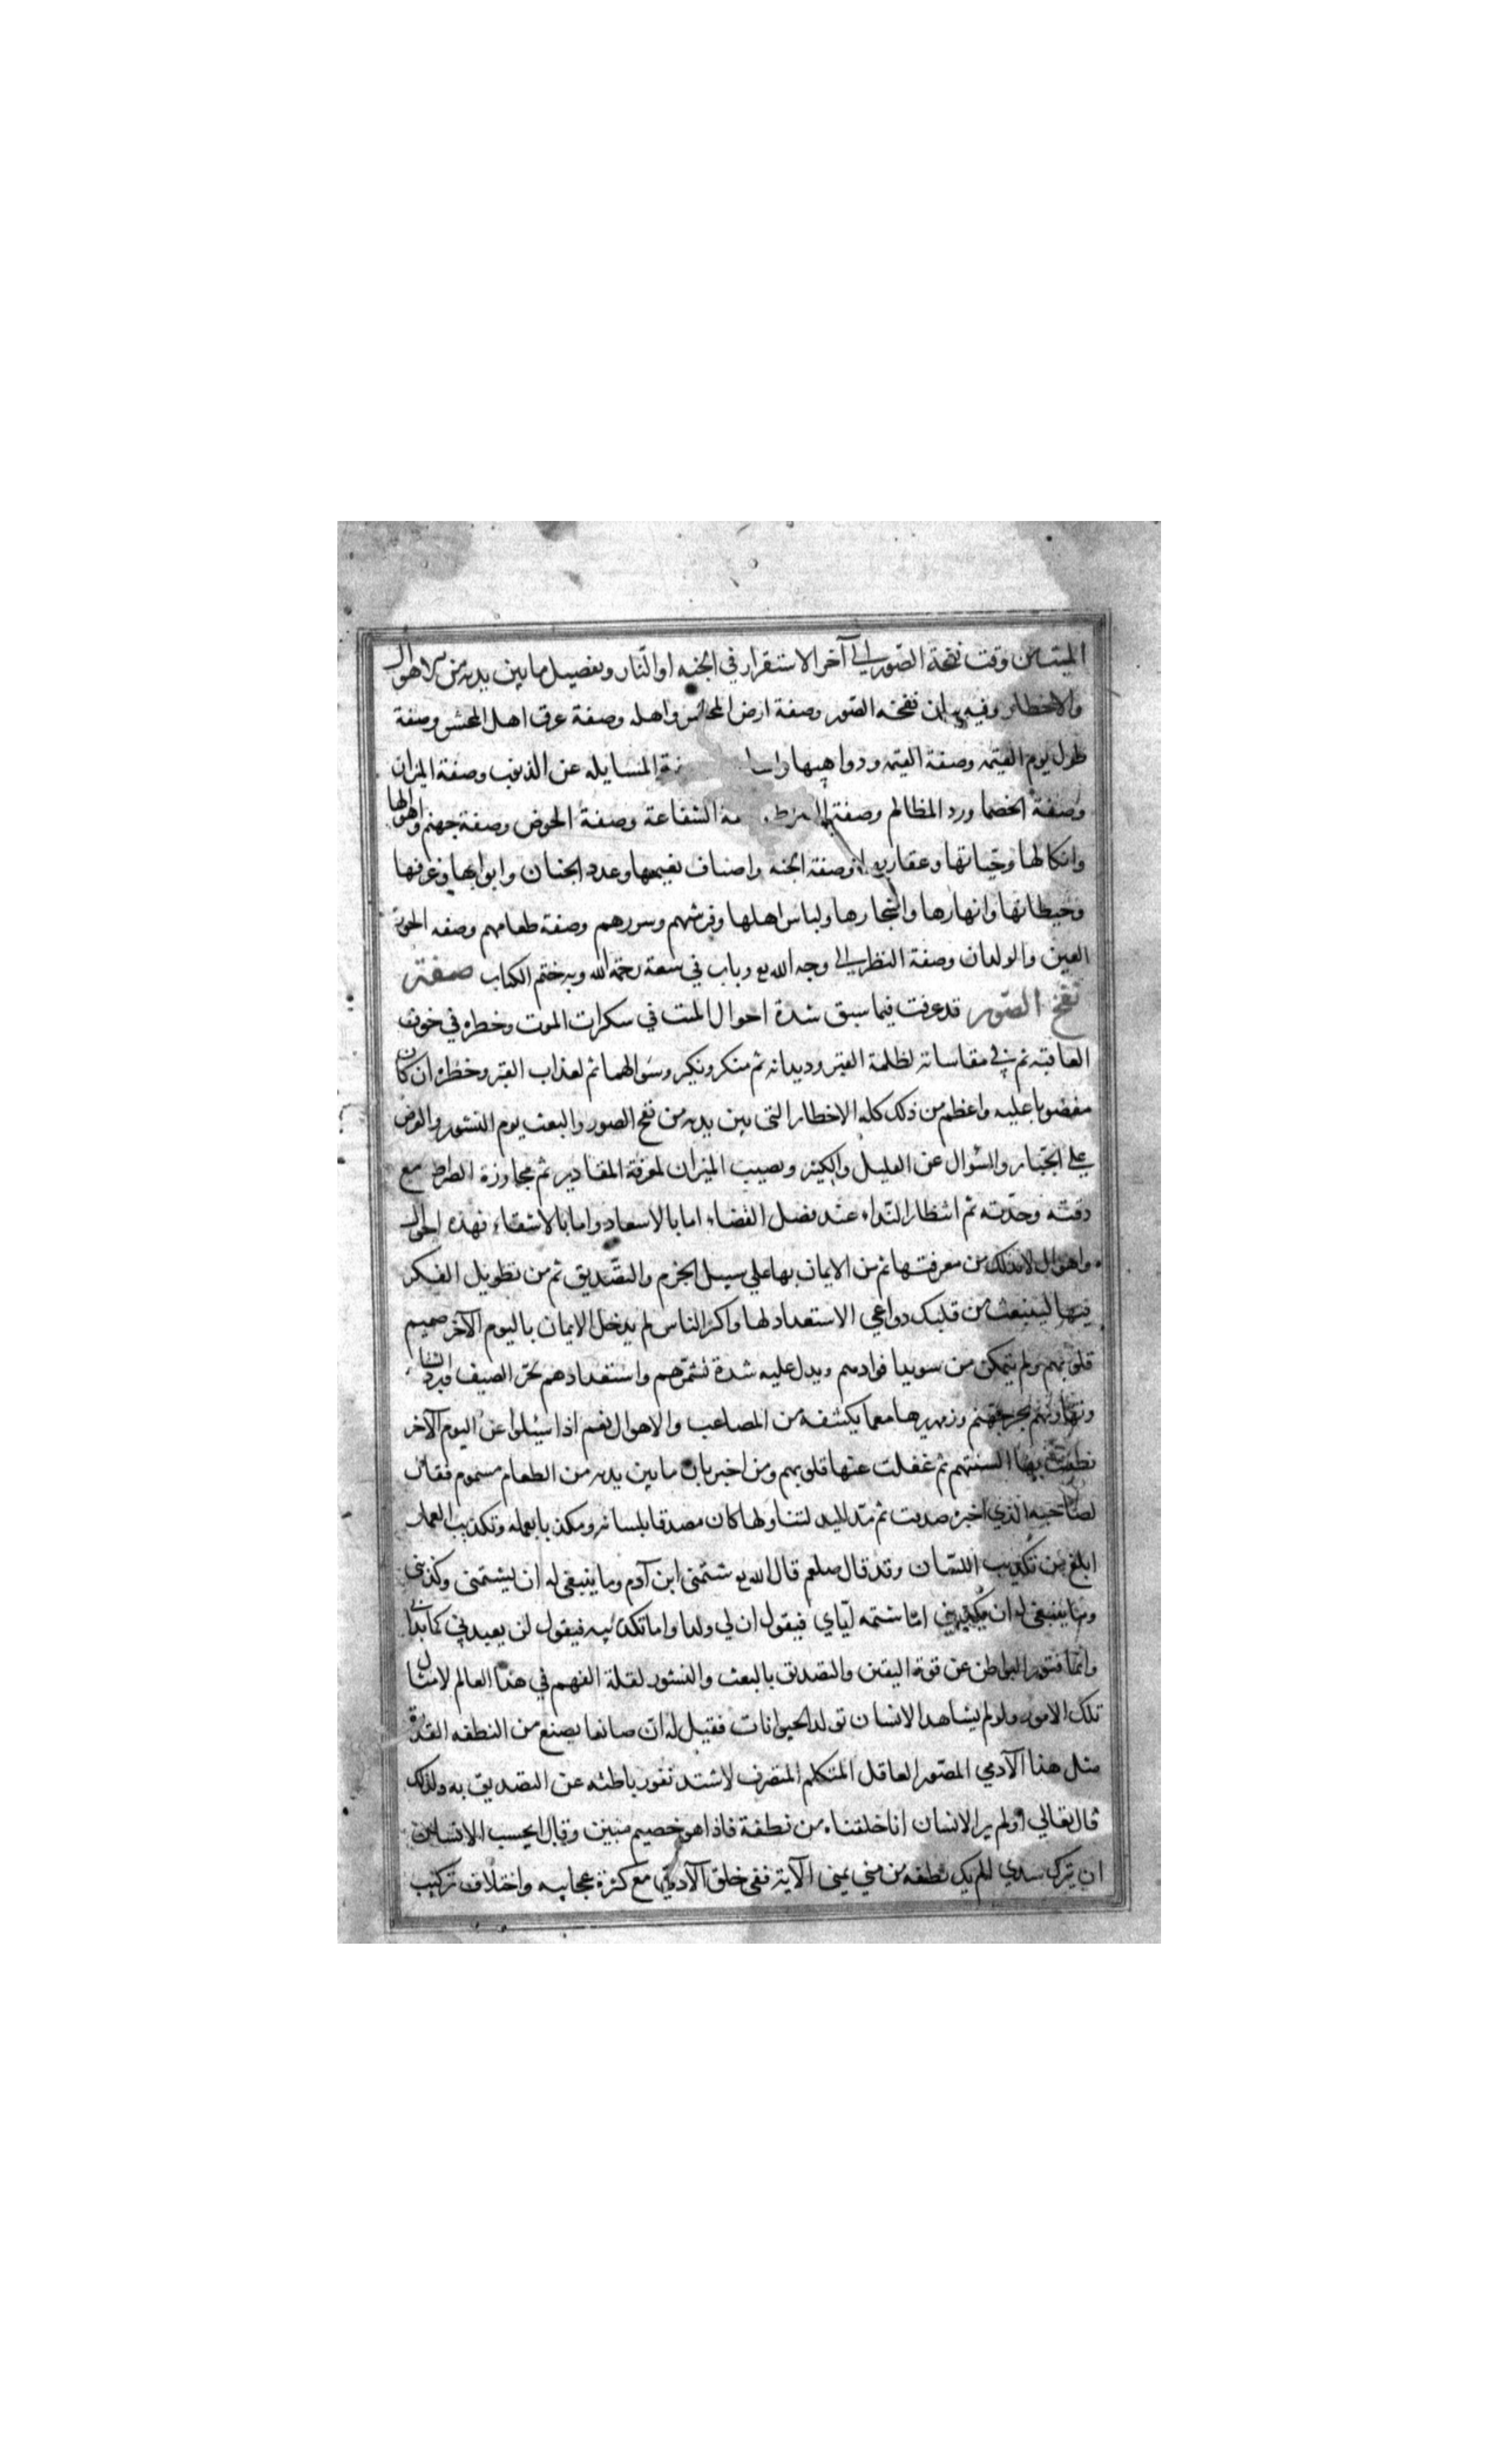 الميت من وقت نفخة الصّور الى آخر الاستقرار في الجنه او النّار وتفصيل ما بين يديه من الاهوال
والاخطار وفيه بيان نفخه الصّور وصفة ارض المحشر واهله وصفة عرق اهل المحشر وصفة
طول يوم القيمه وصفة القيمه ودواهيها واسا المسايله عن الذنوب وصفة الميزان
وصفة الخصما ورد المظالم وصفة الشفاعة وصفة الحوض وصفة جهنم واهوالها
وانكالها وحيّاتها وعقاربها وصفة الجنه واصناف نعيمها وعدد الجنان وابوابها وغرفها
وحيطانها وانهارها واشجارها ولباس اهلها وفرشهم وسررهم وصفة طعامهم وصفه الحور
العين والولدان وصفة النظر الى وجه الله تع وباب في سعة رحمة الله وبه ختم الكتاب صفة
نفخ الصّور قد عرفت فيما سبق شدة احوال الميت في سكرات الموت وخطره في خوف
العاقبه ثم في مقاساته لظلمة القبر وديدانه ثم منكر ونكير وسؤالهما ثم لعذاب القبر وخطره ان كان
مغضوبا عليه واعظم من ذلك كله الاخطار التى بين يديه من نفخ الصور والبعث يوم النشور والعرض
على الجبّار والسّؤال عن القليل والكثير ونصب الميزان لمعرفة المقادير ثم مجاوزة الصراط مع
دقته وحدّته ثم انتظار النّداء عند فصل القضاء اما بالاسعاد واما بالاشقاء فهذه احوال
واهوال لابد لك من معرفتها ثم من الايمان بها على سبيل الجزم والتصّديق ثم من تطويل الفكر
فيها لينبعث من قلبك دواعي الاستعداد لها واكثر الناس لم يدخل الايمان باليوم الآخر صميم
قلوبهم ولم يتمكن من سويدا فوادهم ويدل عليه شدة تشمّرهم واستعدادهم لحرّ الصيف وبرد الشتا
وتهاونهم بحر جهنم وزمهريرها مع ما يكتنفه من المصاعب والاهوال نعم اذا سيئلوا عن اليوم الآخر
نطقت بها السنتهم ثم غفلت عنها قلوبهم ومن اخبر بان ما بين يديه من الطعام مسموم فقال
لصاحبه الذي اخبره صدقت ثم مدّ اليد لتناولها كان مصدقا بلسانه ومكذبا بعمله وتكذيب العمل
ابلغ من تكذيب اللسّان وقد قال صلعم قال الله تع شتمنى ابن آدم وما ينبغى له ان يشتمنى وكذبنى
وما ينبغى له ان يكذبني امّا شتمه ايّاي فيقول ان لي ولدا واما تكذيبه فيقول لن يعيدني كما بداني
وانّما فتور البواطن عن قوة اليقين والتصديق بالبعث والنشور لقلة الفهم في هذا العالم لامثال
تلك الامور ولو لم يشاهد الانسان تولد الحيوانات فقيل له ان صانعا يصنع من النطفه القذرة
مثل هذا الآدمي المصّور العاقل المتكلم المتصرف لاشتد نفور باطنه عن التصديق به ولذلك
قال تعالي اولم ير الانسان انا خلقناه من نطفة فاذا هو خصيم مبين وقال ايحسب الانسان
ان يترك سدي الم يك نطفه من مني يمنى الآية ففى خلق الآدمي مع كثرة عجايبه واختلاف تركيب